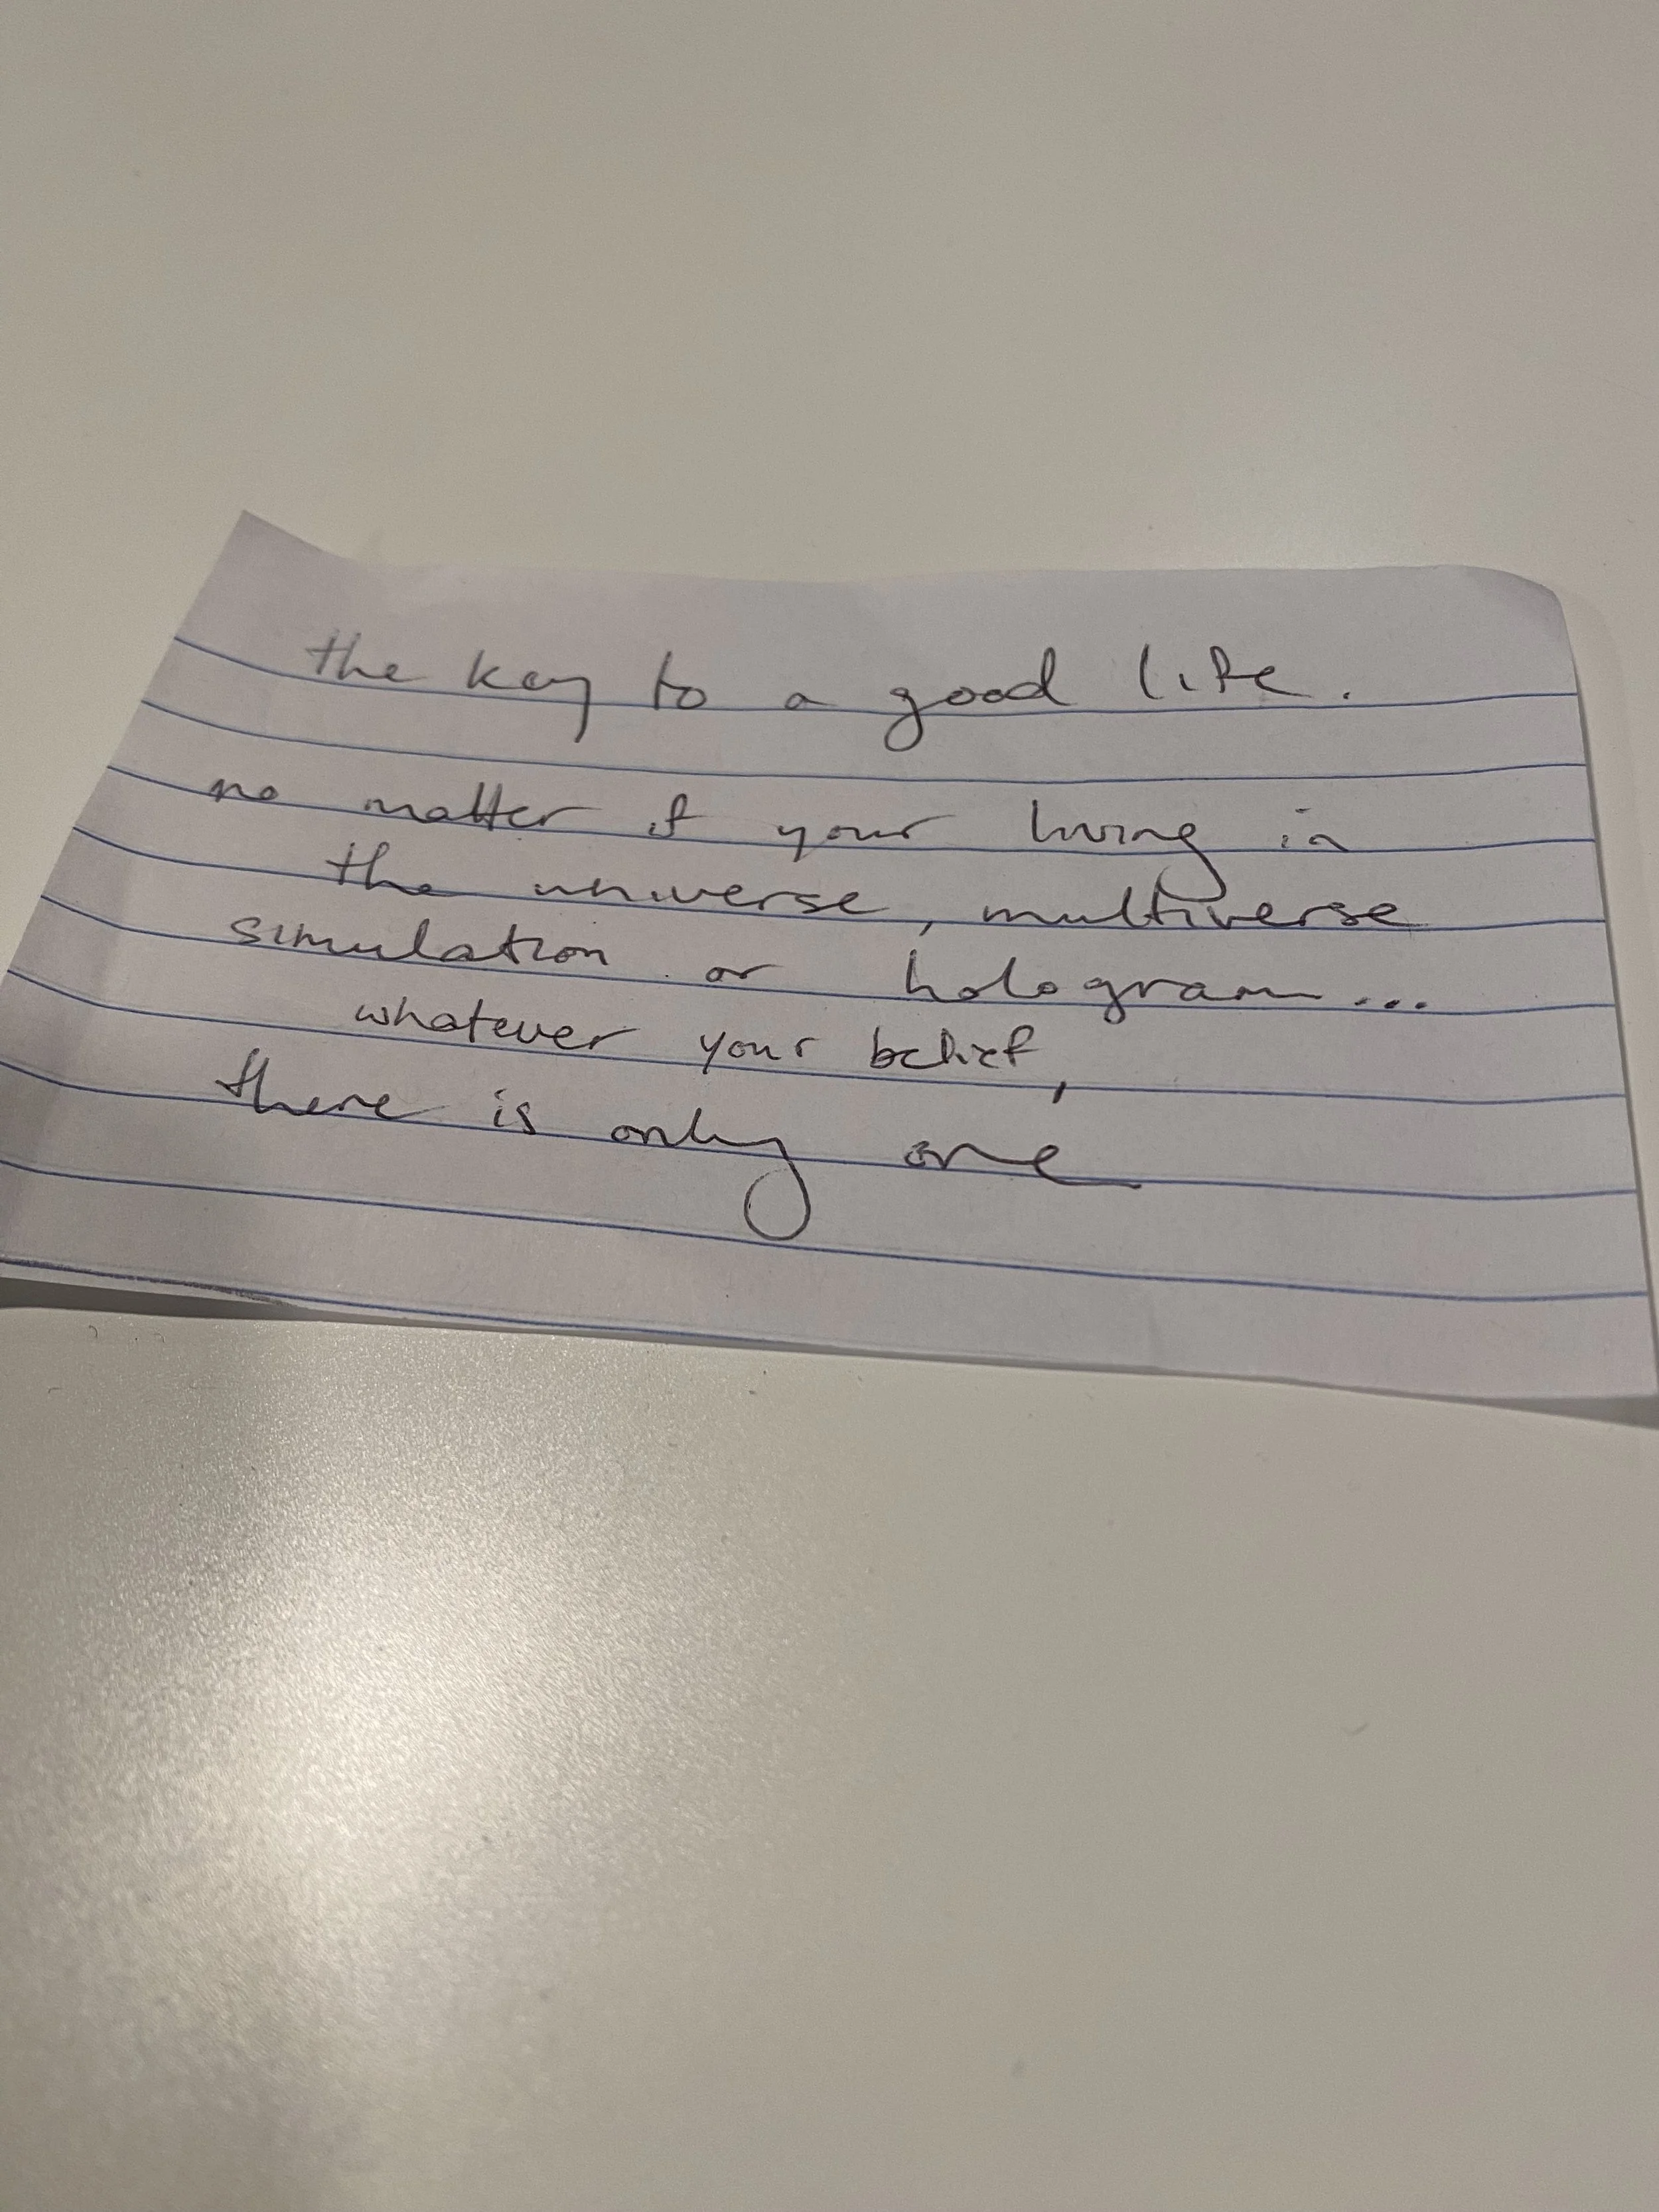 the key to a good life.
no matter if your living in
the universe, multiverse
simulation or hologram...
whatever your belief,
there is only one